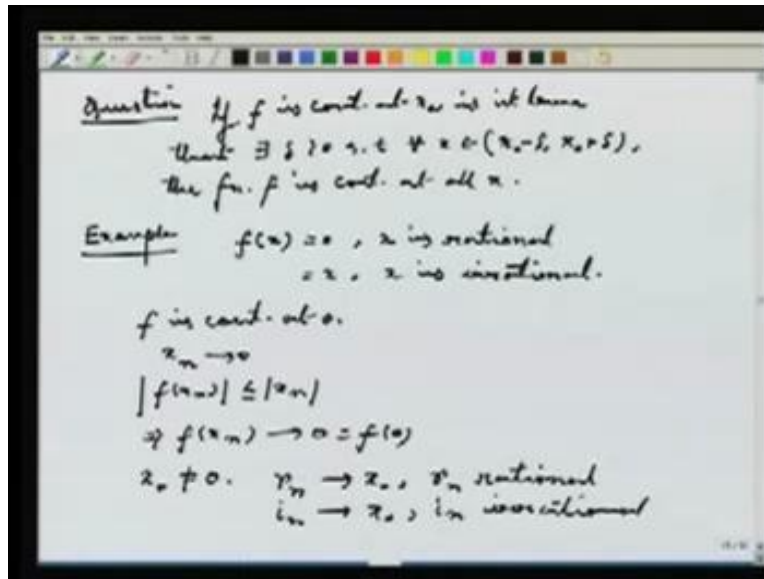 Question If f is cont. at x₀, is it true
that ∃ δ > 0 s.t ∀ x ∈ (x₀-δ, x₀+δ),
the fn. f is cont. at all x.
Example f(x) = 0, x is rational
= x, x is irrational.
f is cont. at 0.
xₙ → 0
|f(xₙ)| ≤ |xₙ|
⇒ f(xₙ) → 0 = f(0)
x₀ ≠ 0. rₙ → x₀, rₙ rational
iₙ → x₀, iₙ irrational